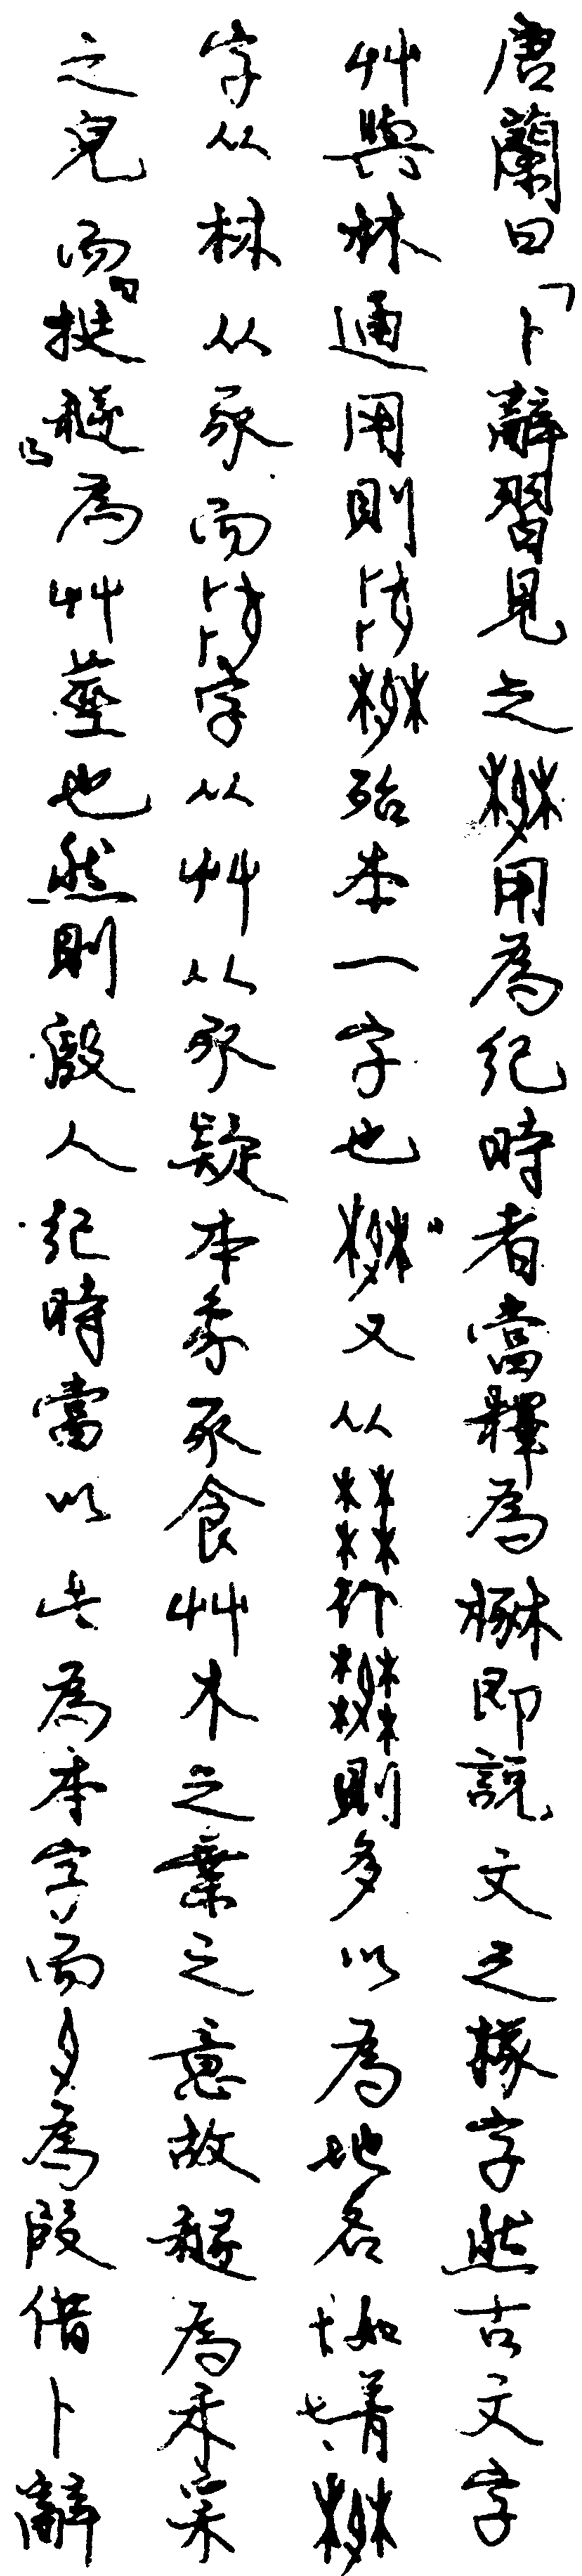 唐蘭曰「卜辭習見之用為紀時者當釋為即說文之字然古文字
艸與林通用則殆本一字也又从作則多以為地名如
字从林从豕而字从艸从豕疑本象豕食艸木之葉之意故為禾采
之皃而挺為艸也然則殷人紀時當以此為本字而為叚借卜辭